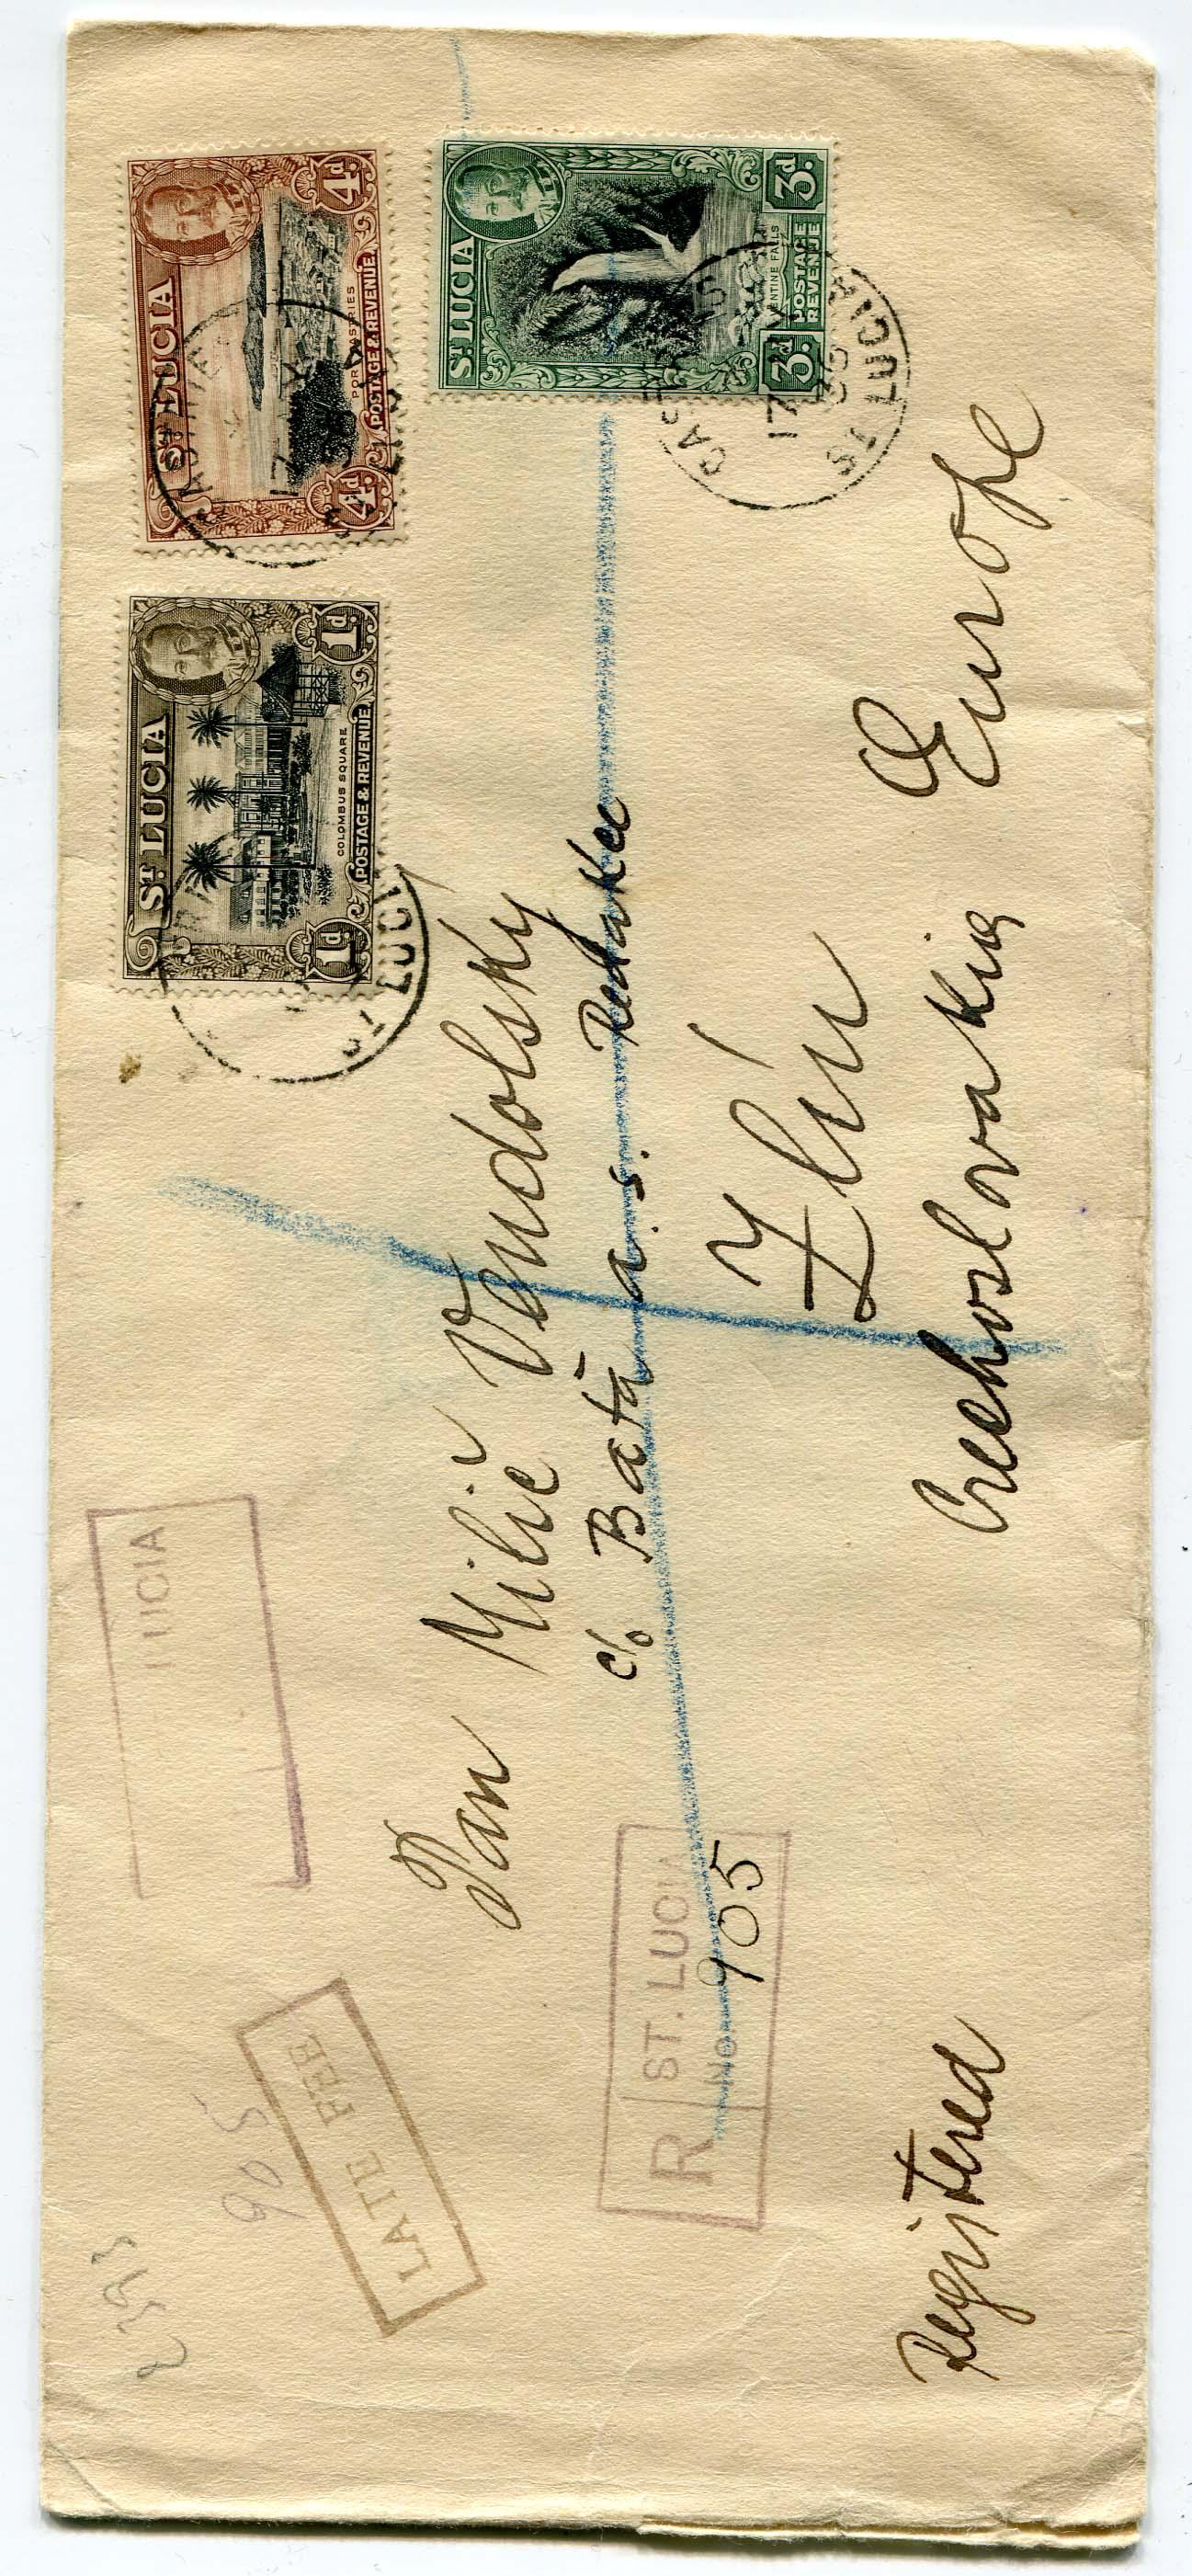 ST LUCIA
1d. 1d.
COLOMBUS SQUARE
POSTAGE & REVENUE
ST LUCIA
4d. 4d.
PORT CASTRIES
POSTAGE & REVENUE
ST LUCIA
3d. 3d.
POSTAGE
REVENUE
CASTRIES
17
ST LUCIA
17
35
ST LUCIA
LUCIA
LATE FEE
905
Pan Milič Vandolsky
c/o Baťa a.s.
Zlín
Czechoslovakia Europe
R ST. LUCIA
No. 905
Registered